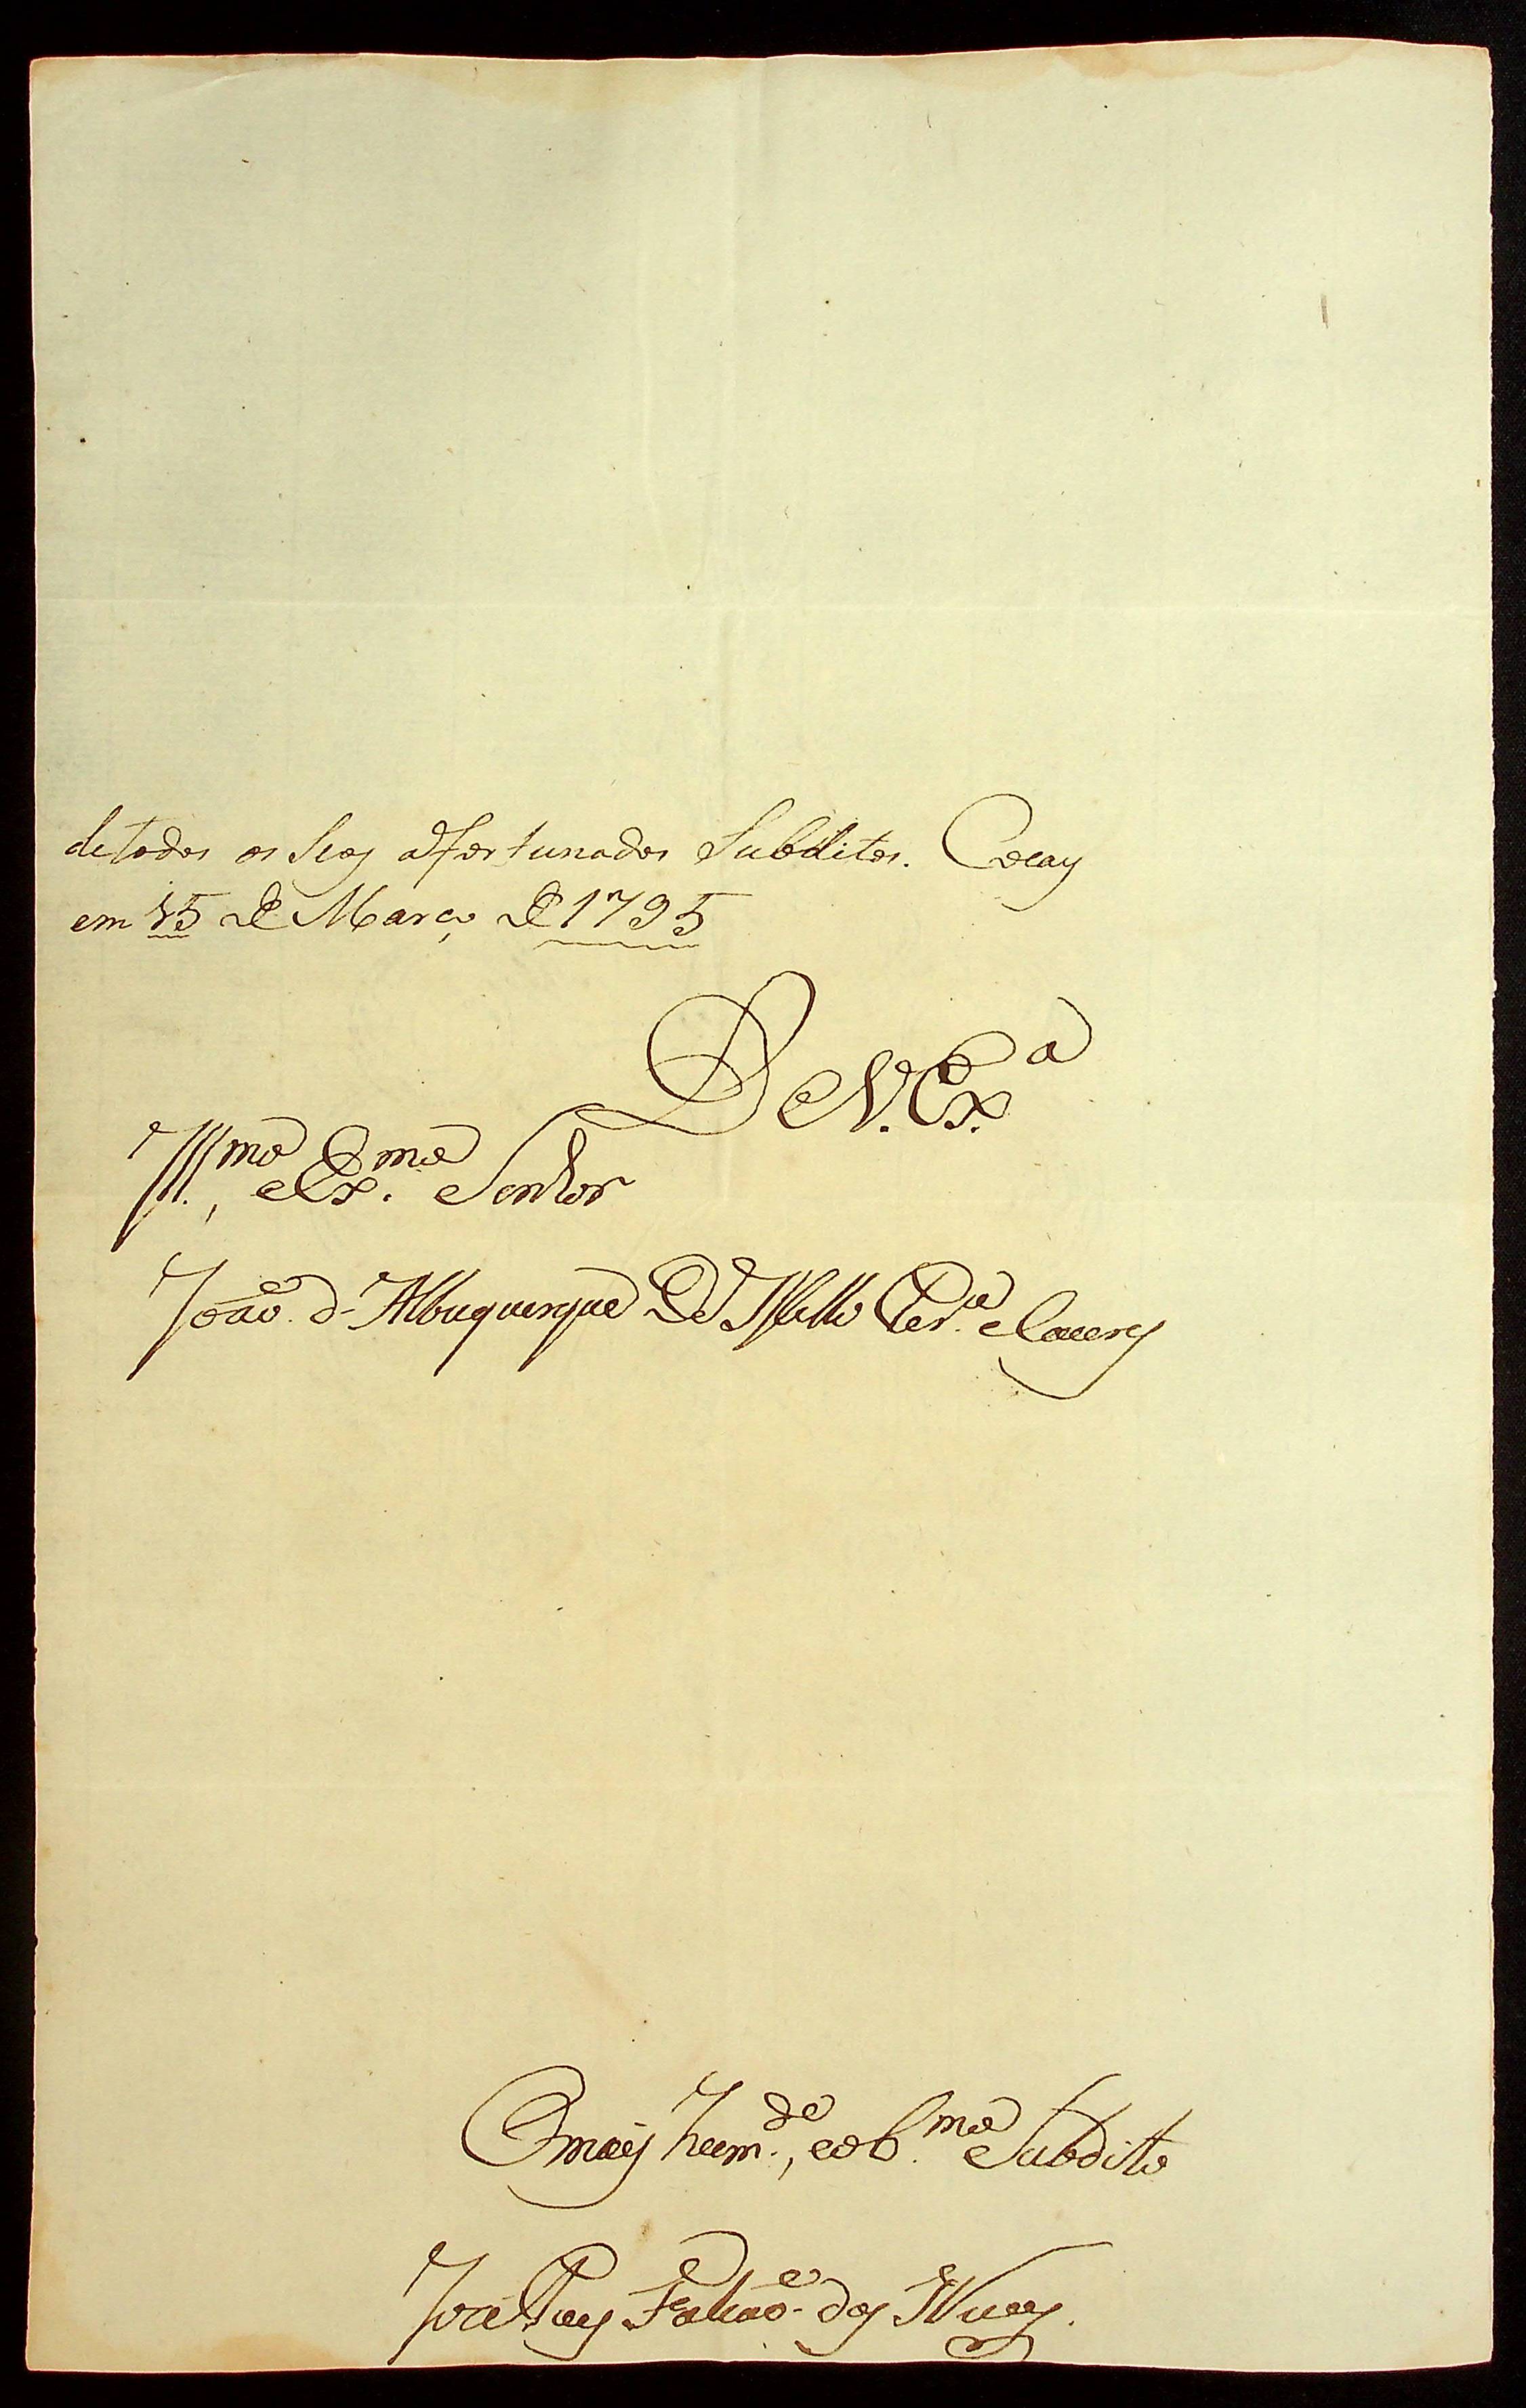 de todos os Seos afortunados Subditos. Cocay
em 15 de Março de 1795
De V. Ex.ª
Ill.mo, e Ex.mo Senhor
João d'Albuquerque De Mello Per.ª e Caceres
O mais hum.de, e ob.mo Subdito
José Paes Falcão das Neves.